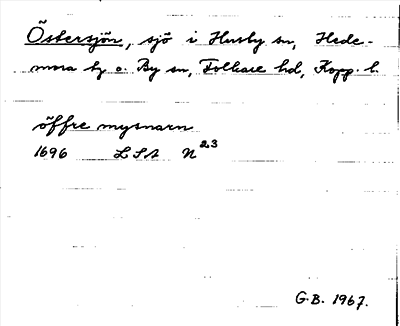 Östersjön, sjö i Husby sn, Hede-
mora tg o. By sn, Folkare hd, Kopp. l.
öffre mysnarn
1696 LSA N 23
G.B. 1967.